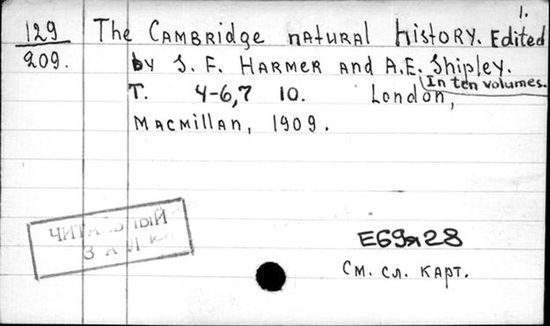 1.
129 The Cambridge natural history. Edited
209. by S. F. Harmer and A.E. Shipley.
In ten volumes.
T. 4-6,7 10. London,
Macmillan, 1909.
ЧИТАЛЬНЫЙ
ЗАЛ
Е69я28
См. сл. карт.